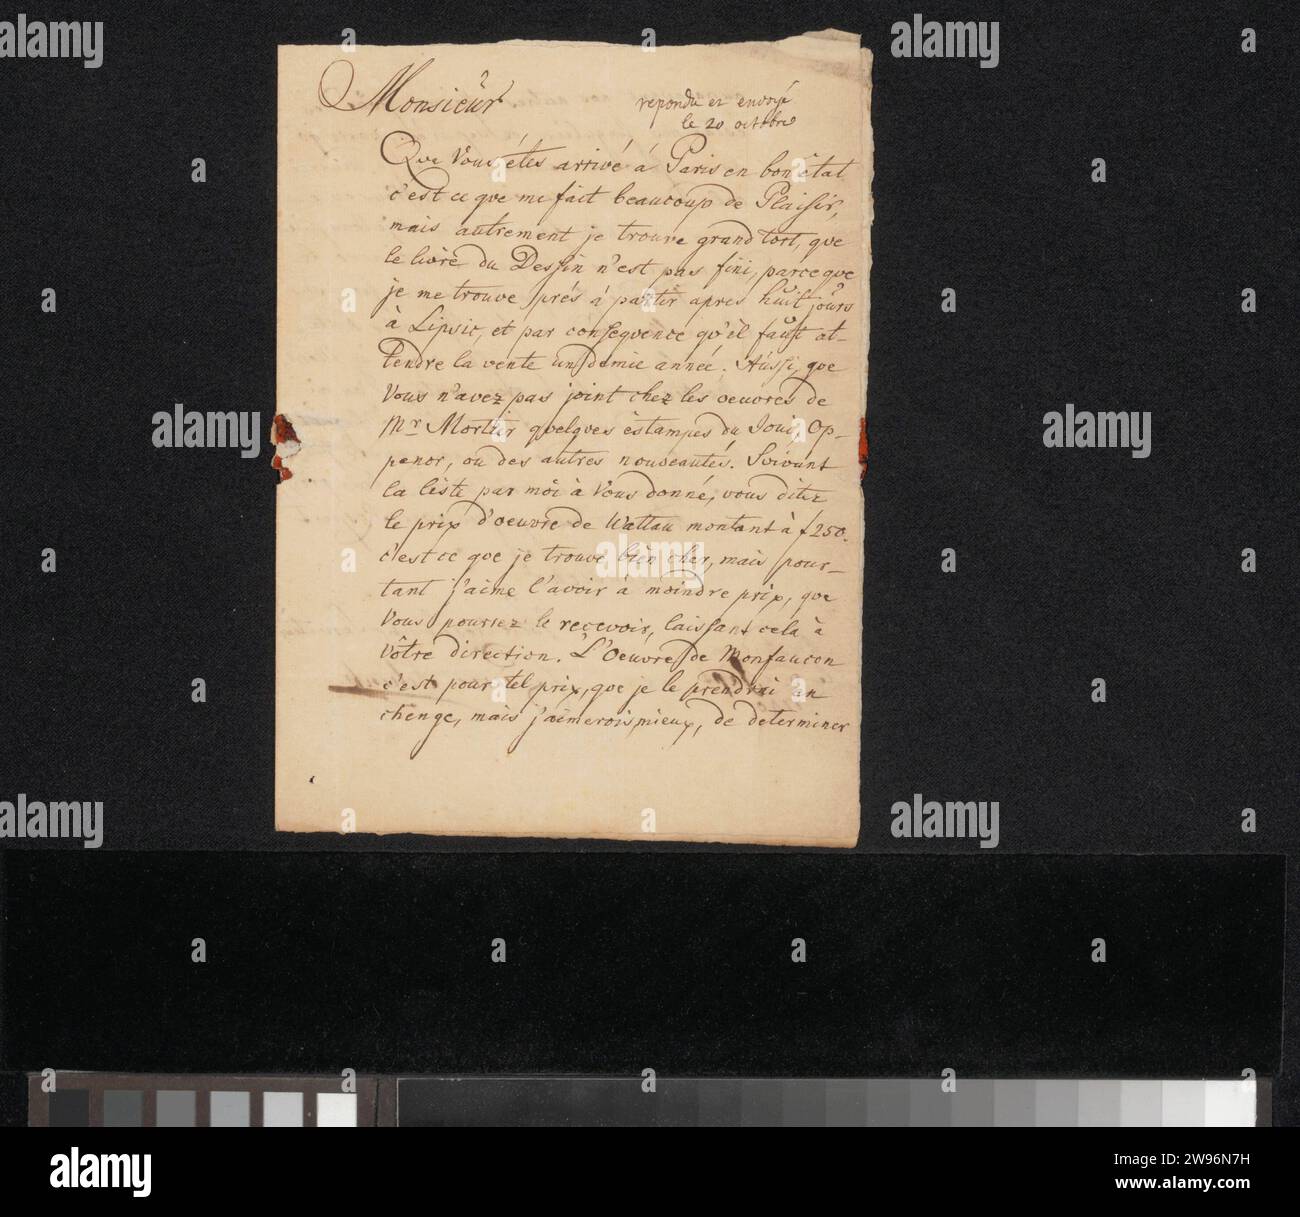 Monsieur
repondu et envoyé
le 20 octobre
Que Vous étes arrivé à Paris en bon êtat
c'est ce que me fait beaucoup de Plaisir,
mais autrement je trouve grand tort, que
le livre du Dessin n'est pas fini, parceque
je me trouve prés à partir apres huit jours
à Lipsic, et par consequence qu'èl faut at-
tendre la vente un demie année. Aússi, que
Vous n'avez pas joint chez les oeuvres de
Mr Mortier quelques èstampes du Joui, Op-
penor, ou des autres nouveautés. Suivant
la lèste par môi à Vous donné, vous ditez
le prix d'oeuvre de Wattau montant à f 250.
c'est ce que je trouve bièn cher, mais pour-
tant j'aime l'avoir à moindre prix, que
Vous pourrez le recevoir, laissant cela à
vôtre direction. L'Oeuvre de Monfaucon
c'est pour tel prix, que je le prendrai an
chenge, mais j'aimerois mieux, de determiner
alamy
Image ID: 2W96N7H
www.alamy.com